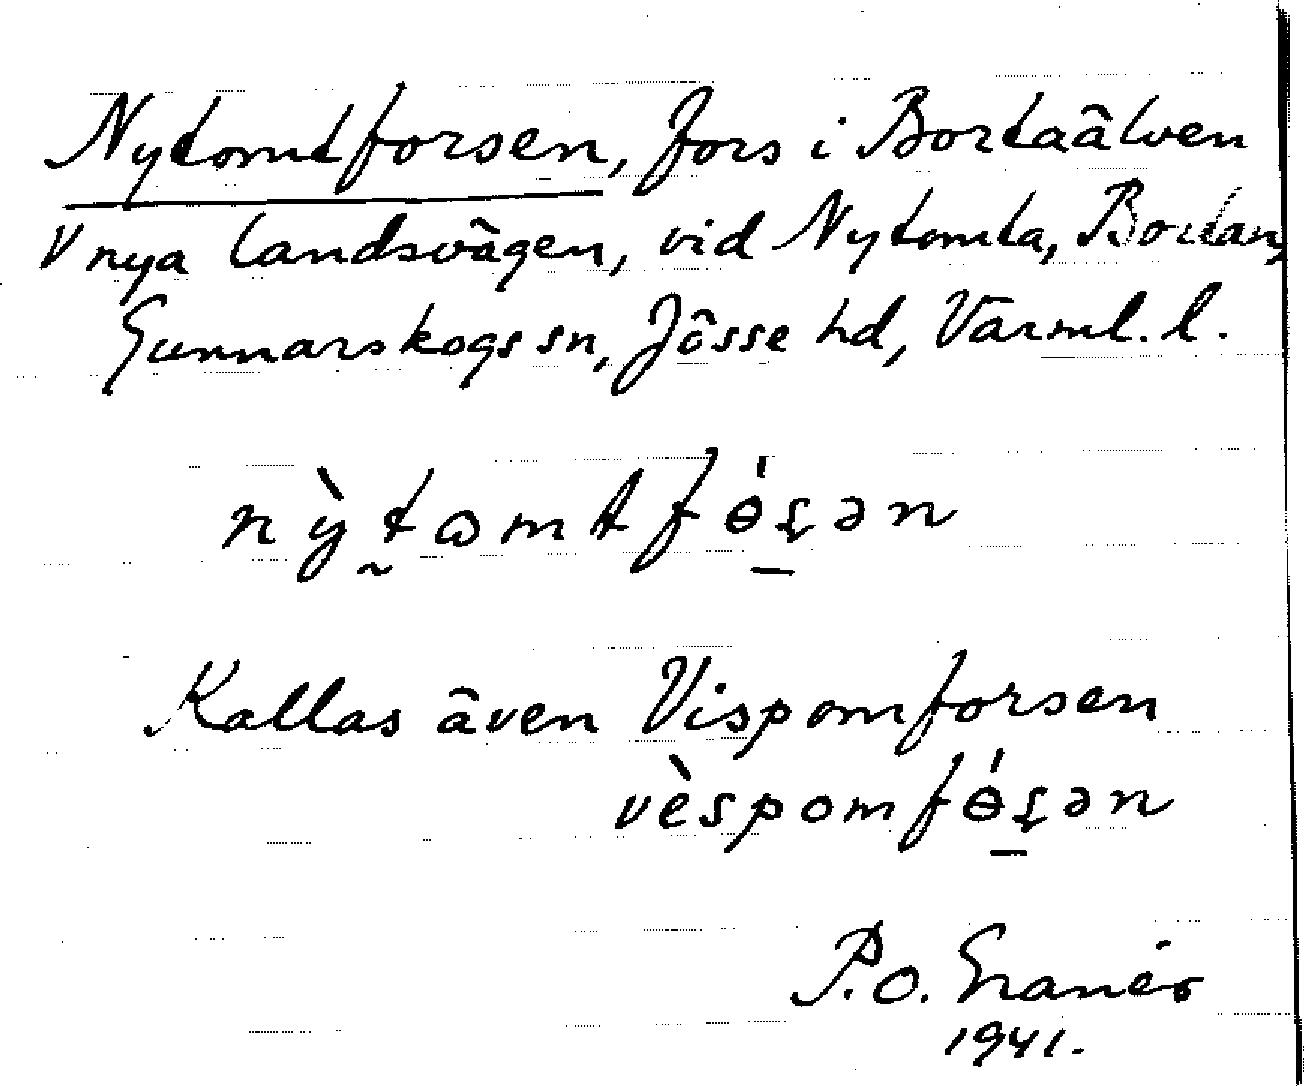 Nytomtforsen, fors i Bortaälven
V nya landsvägen, vid Nytomta, Bortan,
Gunnarskogs sn, Jösse hd, Värml. l.
nỳt̰ɷmtfɵ́ʂən
Kallas även Vispomforsen
vèspomfɵ́ʂən
P.O. Granér
1941.